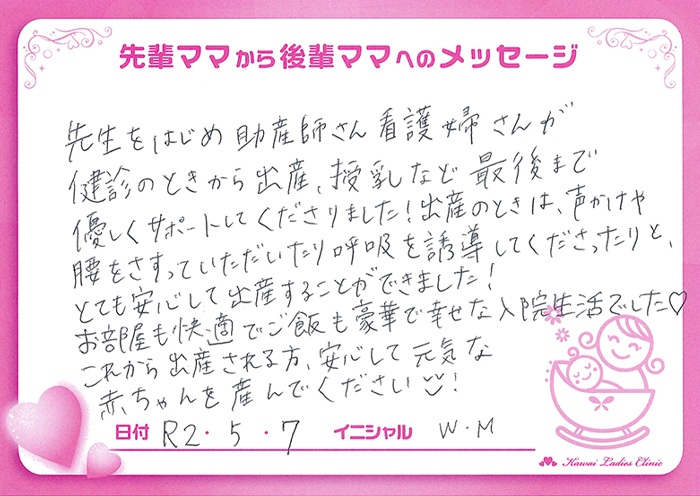 先輩ママから後輩ママへのメッセージ
先生をはじめ助産師さん看護婦さんが
健診のときから出産、授乳など最後まで
優しくサポートしてくださりました！出産のときは、声かけや
腰をさすっていただいたり呼吸を誘導してくださったりと、
とても安心して出産することができました！
お部屋も快適でご飯も豪華で幸せな入院生活でした♡
これから出産される方、安心して元気な
赤ちゃんを産んでください！
日付 R2・5・7 イニシャル W・M
Kawai Ladies Clinic